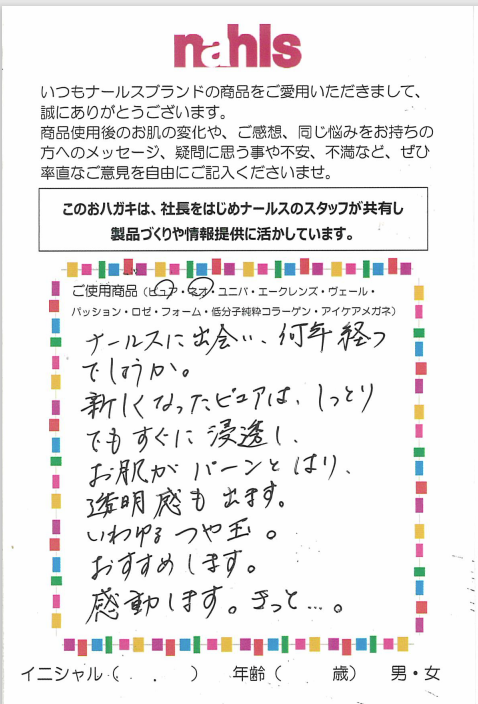 nahls
いつもナールスブランドの商品をご愛用いただきまして、
誠にありがとうございます。
商品使用後のお肌の変化や、ご感想、同じ悩みをお持ちの
方へのメッセージ、疑問に思う事や不安、不満など、ぜひ
率直なご意見を自由にご記入くださいませ。
このおハガキは、社長をはじめナールスのスタッフが共有し
製品づくりや情報提供に活かしています。
ご使用商品（ピュア・ネオ・ユニバ・エークレンズ・ヴェール・
パッション・ロゼ・フォーム・低分子純粋コラーゲン・アイケアメガネ）
ナールスに出会い、何年経つ
でしょうか。
新しくなったピュアは、しっとり
でもすぐに浸透し、
お肌がパーンとはり、
透明感も出ます。
いわゆるつや玉。
おすすめします。
感動します。きっと…。
イニシャル（　．　）　年齢（　歳）　男・女